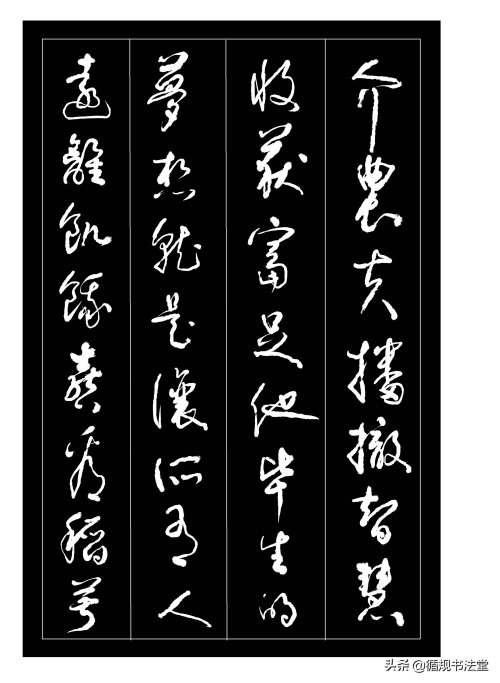 介農夫播撒智慧
收获富足他毕生的
夢想就是讓所有人
遠離飢餓喜看稻
头条 @循规书法堂